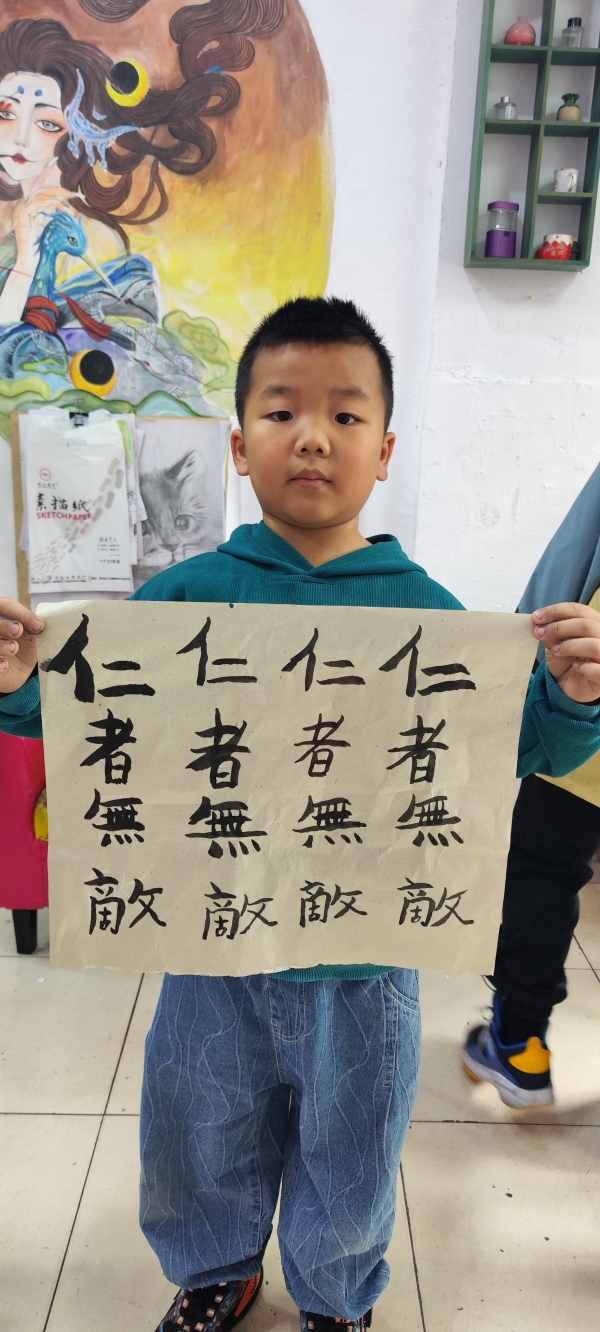 仁者無敵
仁者無敵
仁者無敵
仁者無敵
素描紙
SKETCH PAPER